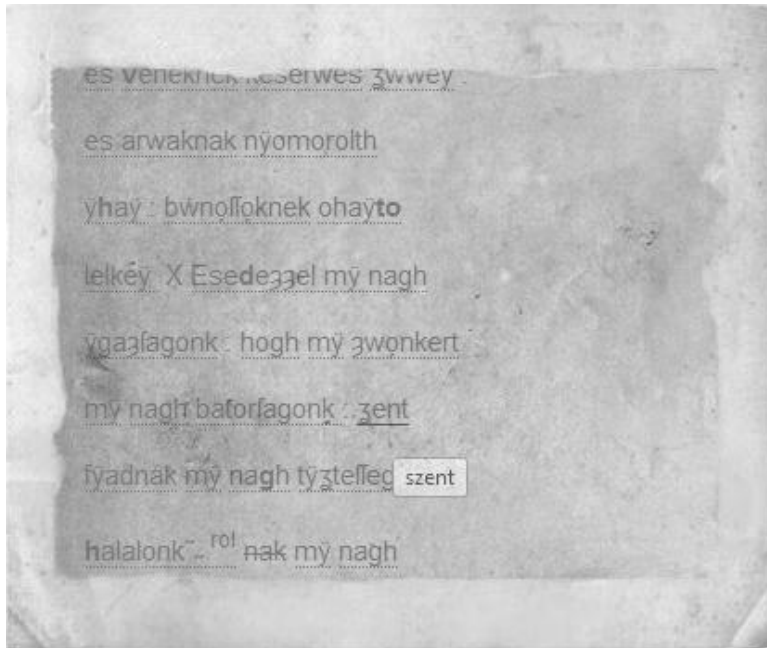 es keserwes ʒwwey :
es arwaknak nÿomorolth
ÿhaÿ : bwnoſſoknek ohaÿto
lelkeÿ X Esedeʒʒel mÿ nagh
ÿgaʒſagonk : hogh mÿ ʒwonkert
mÿ nagh batorſagonk : ʒent
fÿadnak mÿ nagh tÿʒteſſeg szent
halalonk rol nak mÿ nagh